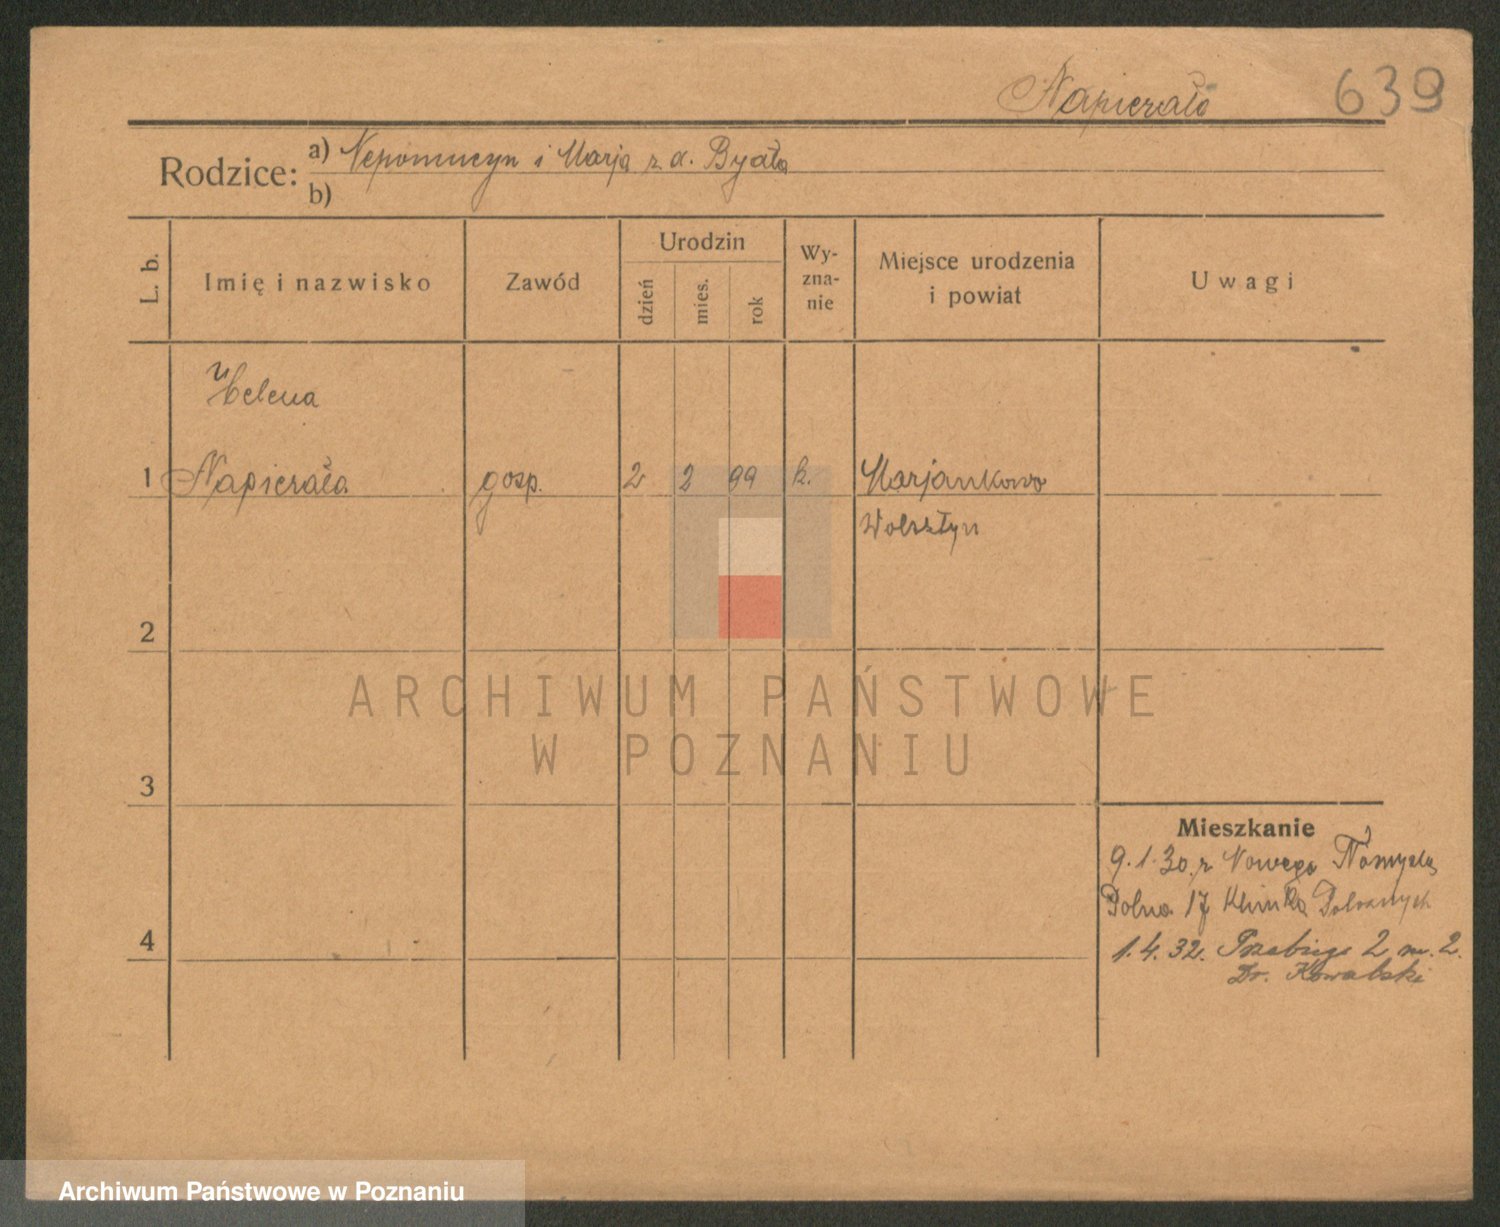 Napierała 639
Rodzice: a) Nepomucyn i Marja z d. Byała
b)
L. b. Imię i nazwisko Zawód Urodzin dzień mies. rok Wy-zna-nie Miejsce urodzenia i powiat Uwagi
Helena
1 Napierała gosp. 2 2 99 k. Marjankowo
Wolsztyn
2
ARCHIWUM PAŃSTWOWE
W POZNANIU
3
Mieszkanie
9.1.30. z Nowego Tomyśla
Polna 17 Klinika
4
1.4.32. 2 m. 2.
Dr. Kowalski
Archiwum Państwowe w Poznaniu